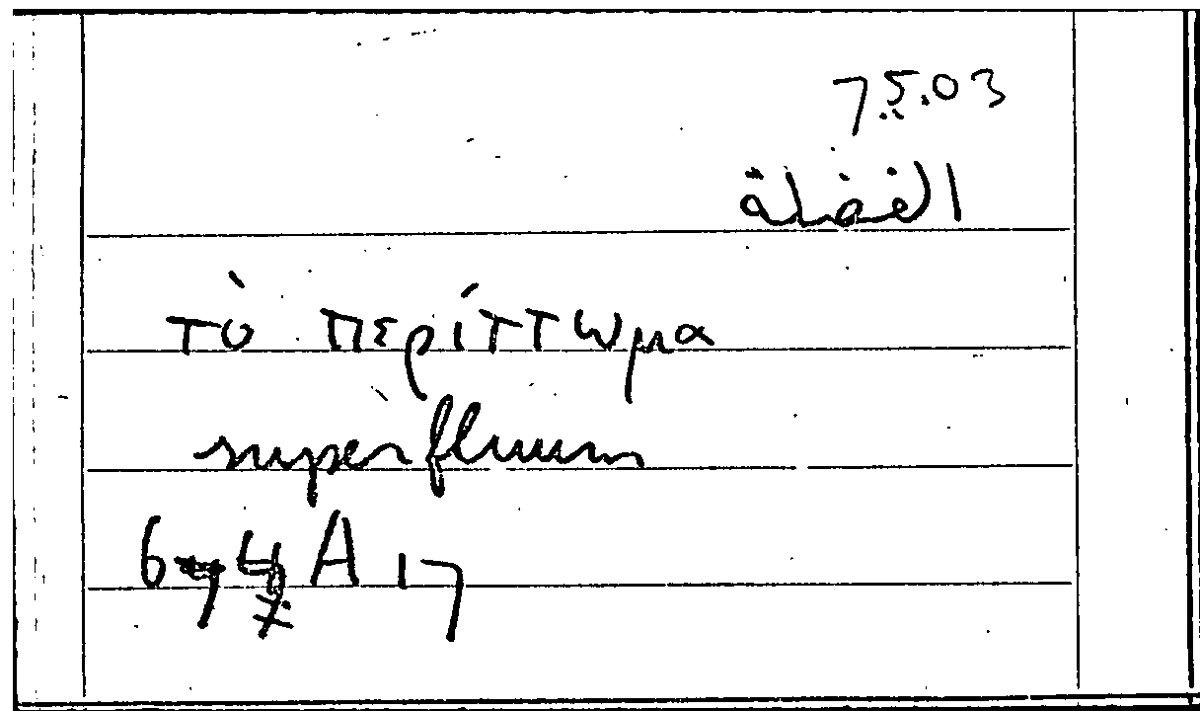 75.03
الفضلة
τὸ περίττωμα
superfluum
A 17